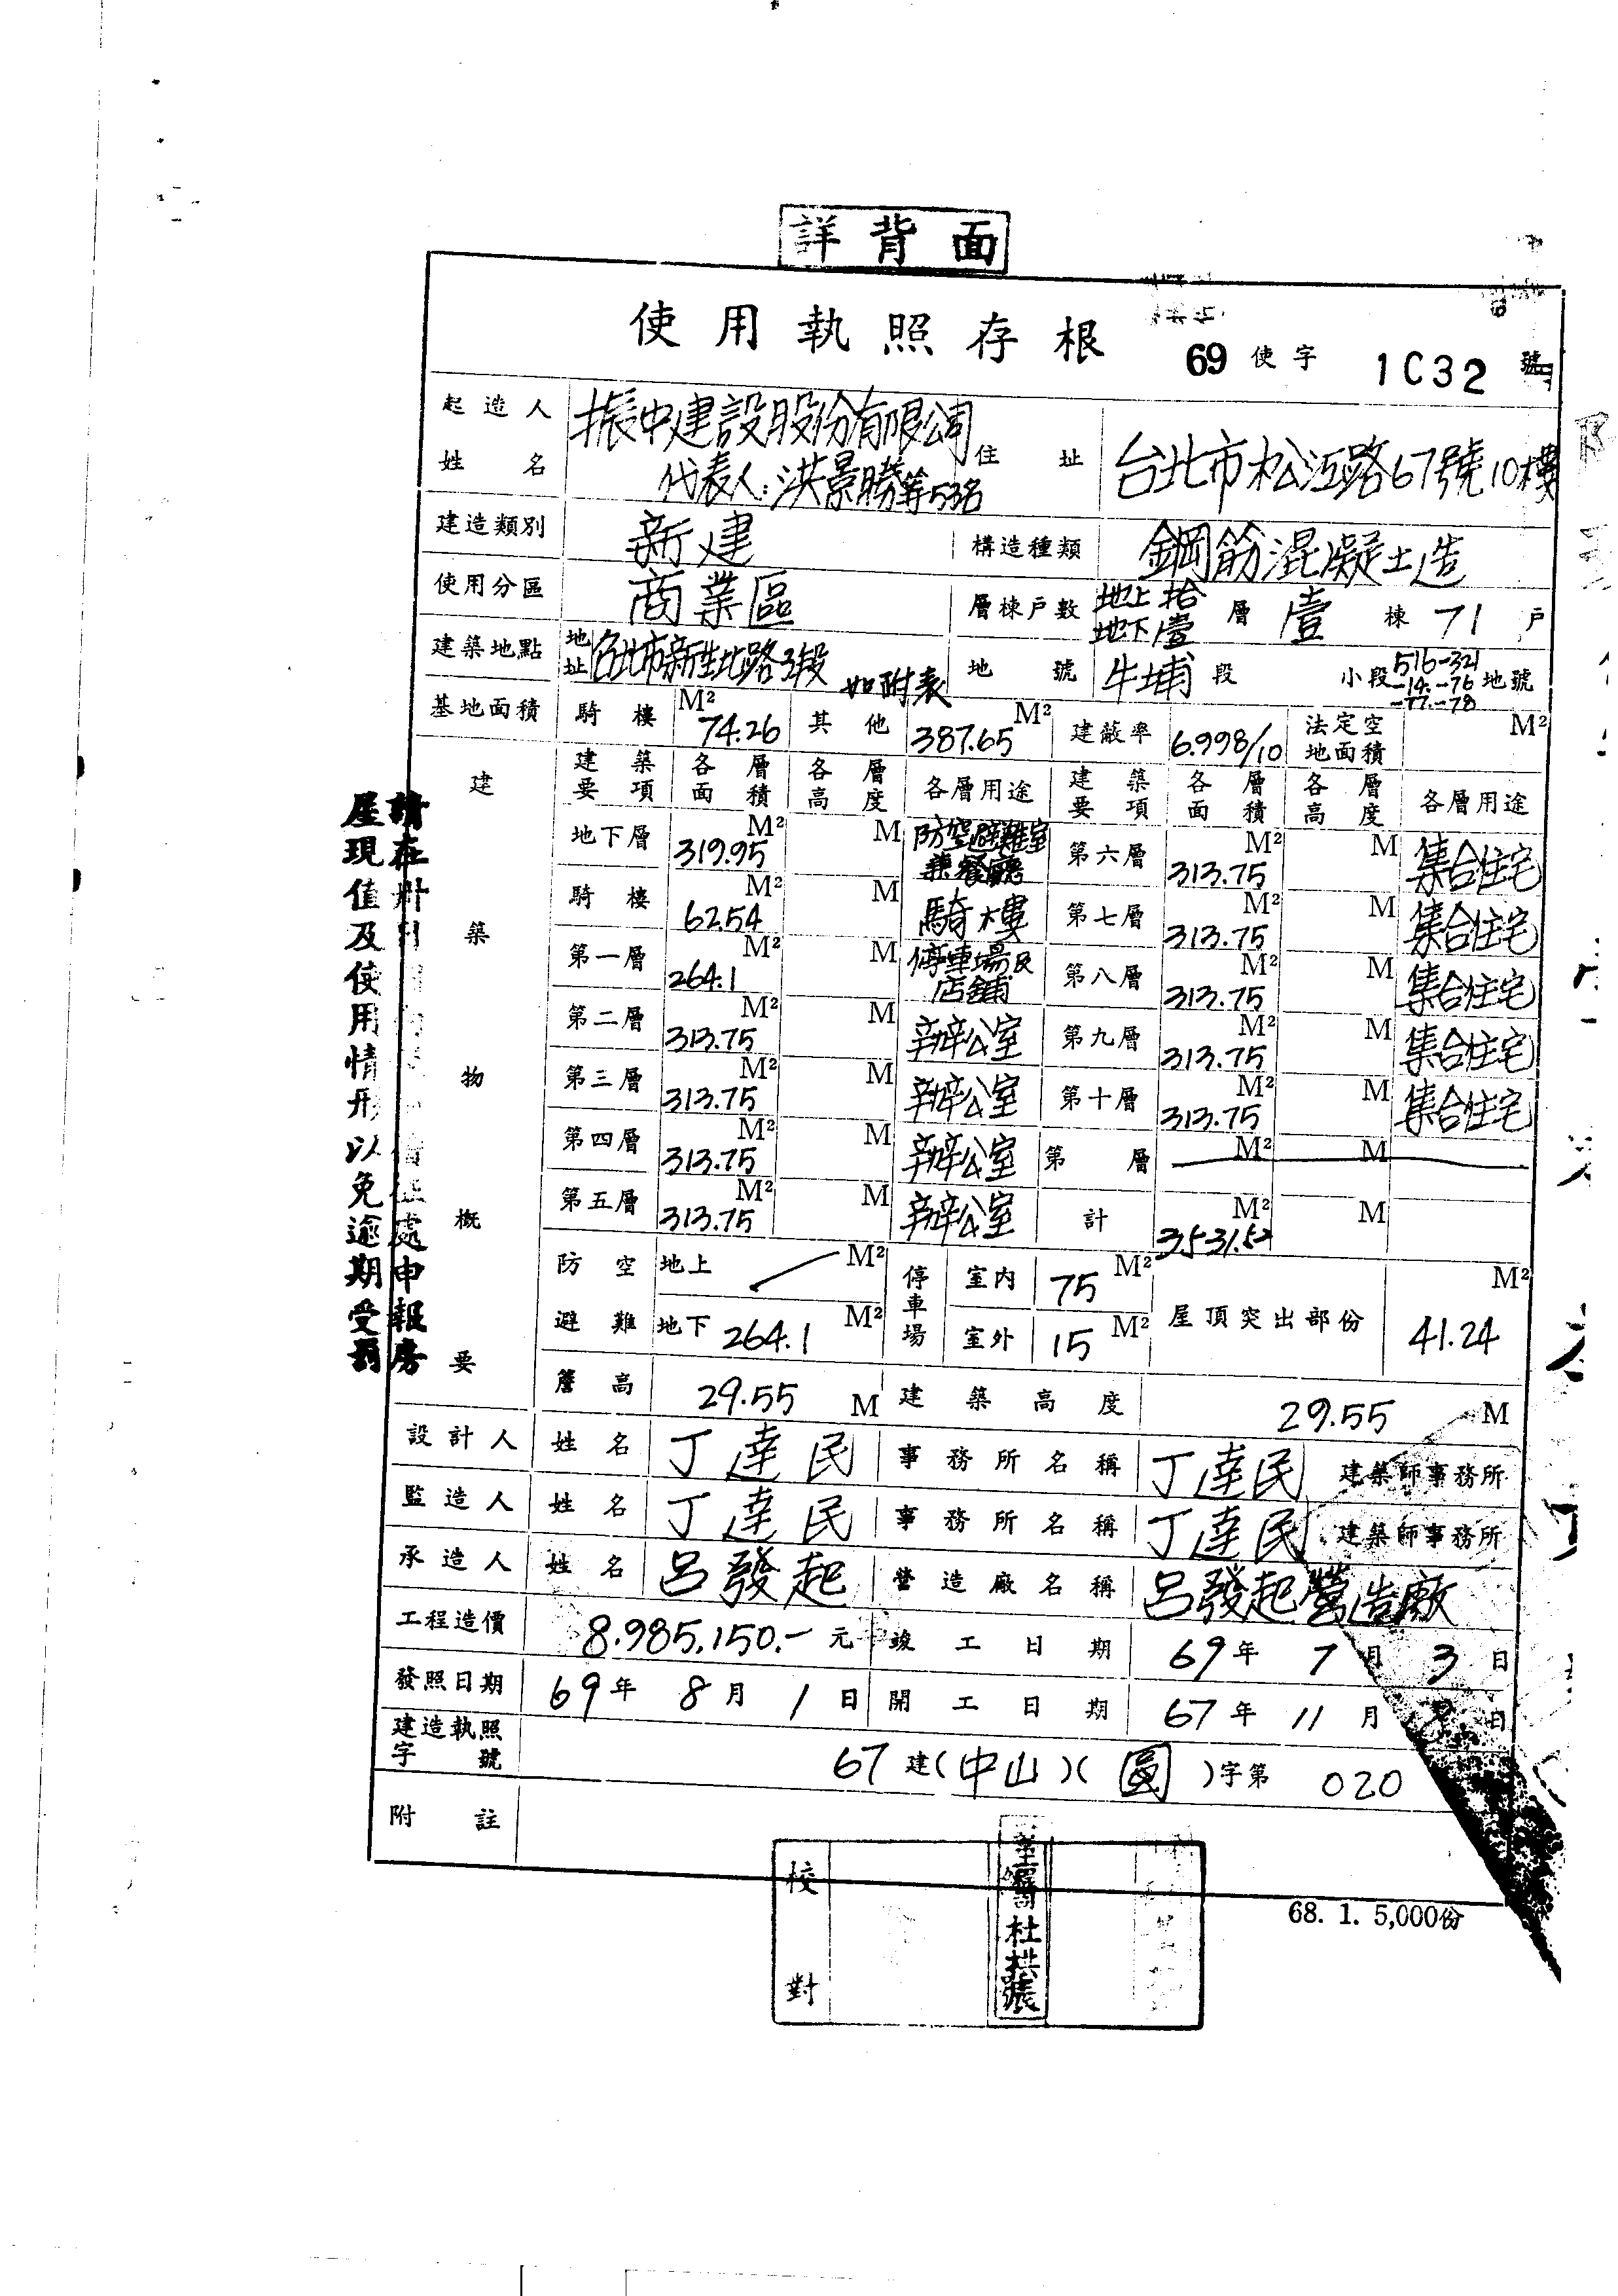 詳背面
使用執照存根 69 使字 1C32 號
起造人姓名 振中建設股份有限公司 代表人:洪景勝等53名 住址 台北市松江路67號10樓
建造類別 新建 構造種類 鋼筋混凝土造
使用分區 商業區 層棟戶數 地上拾 地下壹 層 壹 棟 71 戶
建築地點 地址 台北市新生北路3段 如附表 地號 牛埔 段 小段 516-321 -14.-76 -77.-78 地號
基地面積 騎樓 74.26 M² 其他 387.65 M² 建蔽率 6.998/10 法定空地面積 M²
建築物概要
建築要項 各層面積 各層高度 各層用途 建築要項 各層面積 各層高度 各層用途
地下層 319.95 M² M 防空避難室兼餐廳 第六層 313.75 M² M 集合住宅
騎樓 62.54 M² M 騎樓 第七層 313.75 M² M 集合住宅
第一層 264.1 M² M 停車場及店舖 第八層 313.75 M² M 集合住宅
第二層 313.75 M² M 辦公室 第九層 313.75 M² M 集合住宅
第三層 313.75 M² M 辦公室 第十層 313.75 M² M 集合住宅
第四層 313.75 M² M 辦公室 第 層 M² M
第五層 313.75 M² M 辦公室 計 M² M
防空避難 地上 M² 停車場 室內 75 M² 屋頂突出部份 41.24 M²
地下 264.1 M² 室外 15 M²
簷高 29.55 M 建築高度 29.55 M
設計人 姓名 丁達民 事務所名稱 丁達民 建築師事務所
監造人 姓名 丁達民 事務所名稱 丁達民 建築師事務所
承造人 姓名 呂發起 營造廠名稱 呂發起營造廠
工程造價 8.985,150.- 元 竣工日期 69年 7月 3日
發照日期 69年 8月 1日 開工日期 67年 11月 日
建造執照字號 67 建(中山)( )字第 020
附註
校對
68. 1. 5,000份
屋現值及使用情形以免逾期受罰
處申報房